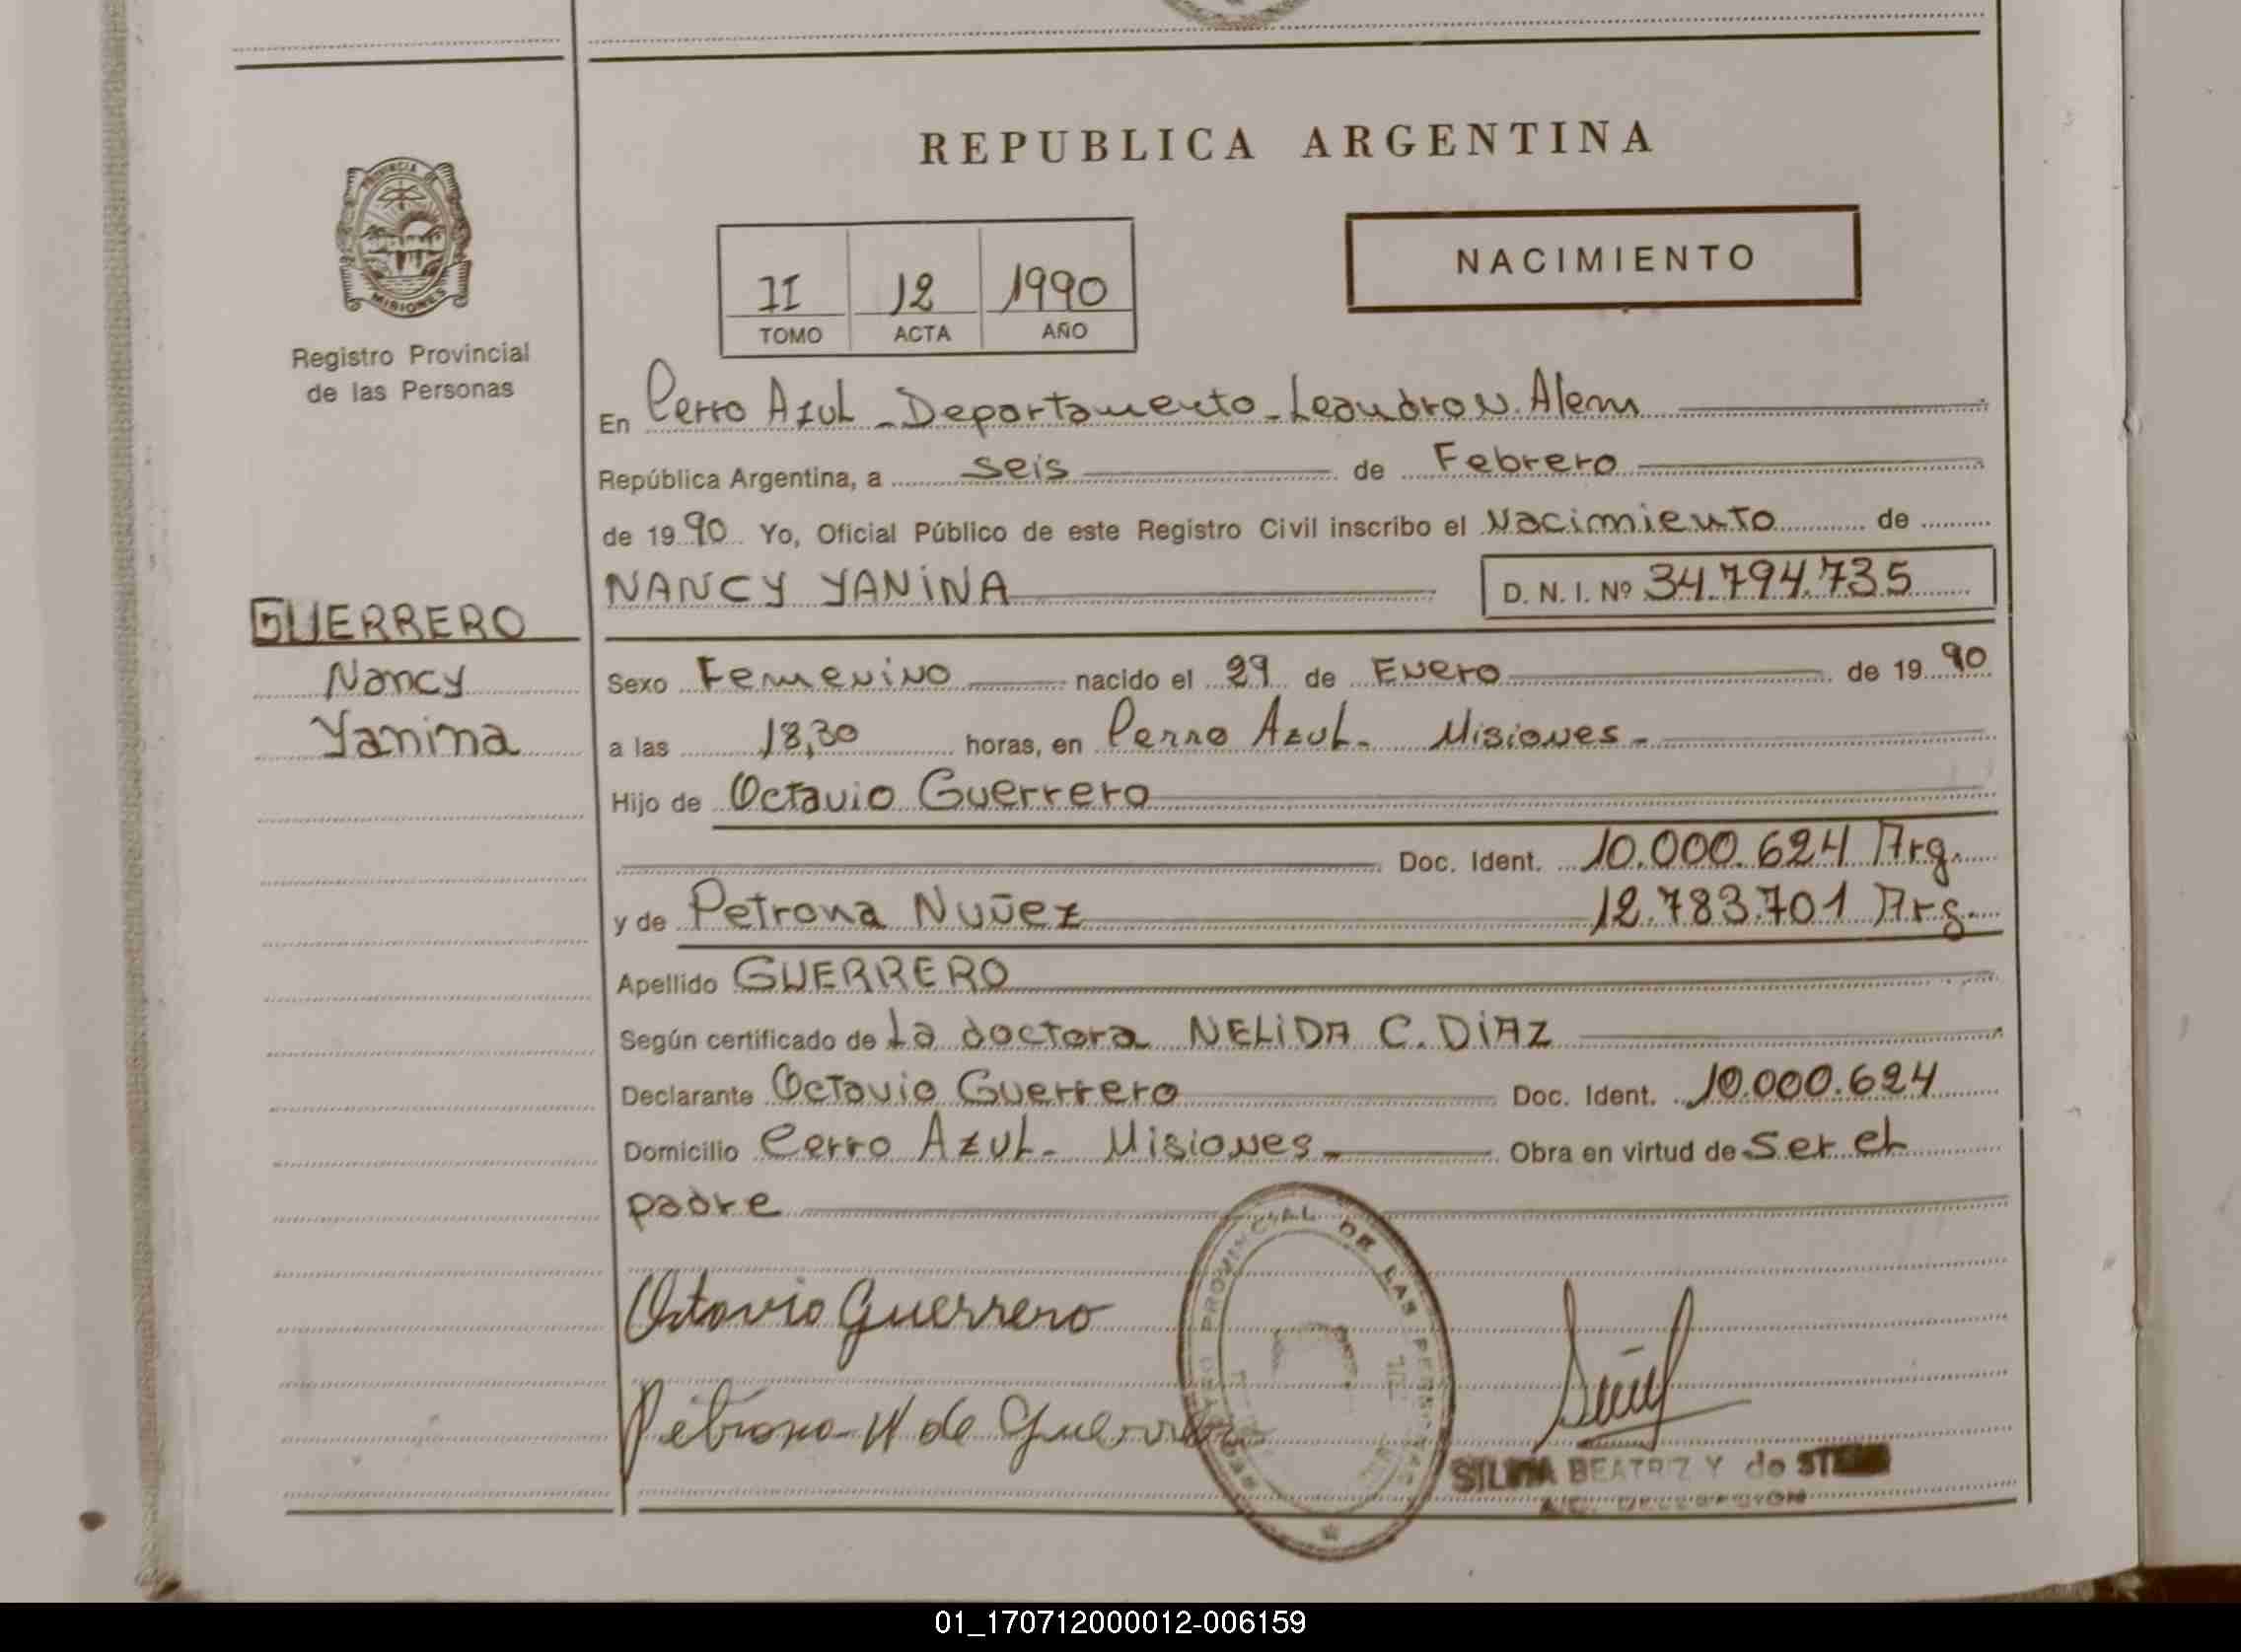 REPUBLICA ARGENTINA
PROVINCIA DE
MISIONES
Registro Provincial
de las Personas
NACIMIENTO
II 12 1990
TOMO ACTA AÑO
En Cerro Azul - Departamento - Leandro N. Alem
República Argentina, a seis de Febrero
de 19 90 Yo, Oficial Público de este Registro Civil inscribo el Nacimiento de
NANCY YANINA D. N. I. Nº 34.794.735
GUERRERO
Nancy
Yanina
Sexo Femenino nacido el 29 de Enero de 19 90
a las 18,30 horas, en Cerro Azul - Misiones -
Hijo de Octavio Guerrero
Doc. Ident. 10.000.624 Arg.
y de Petrona Nuñez 12.783.701 Arg.
Apellido GUERRERO
Según certificado de La doctora NELIDA C. DIAZ
Declarante Octavio Guerrero Doc. Ident. 10.000.624
Domicilio Cerro Azul - Misiones - Obra en virtud de ser el
padre
Octavio Guerrero
Petrona N de Guerrero
PROVINCIAL DE LAS PERSONAS
BEATRIZ Y de
01_170712000012-006159